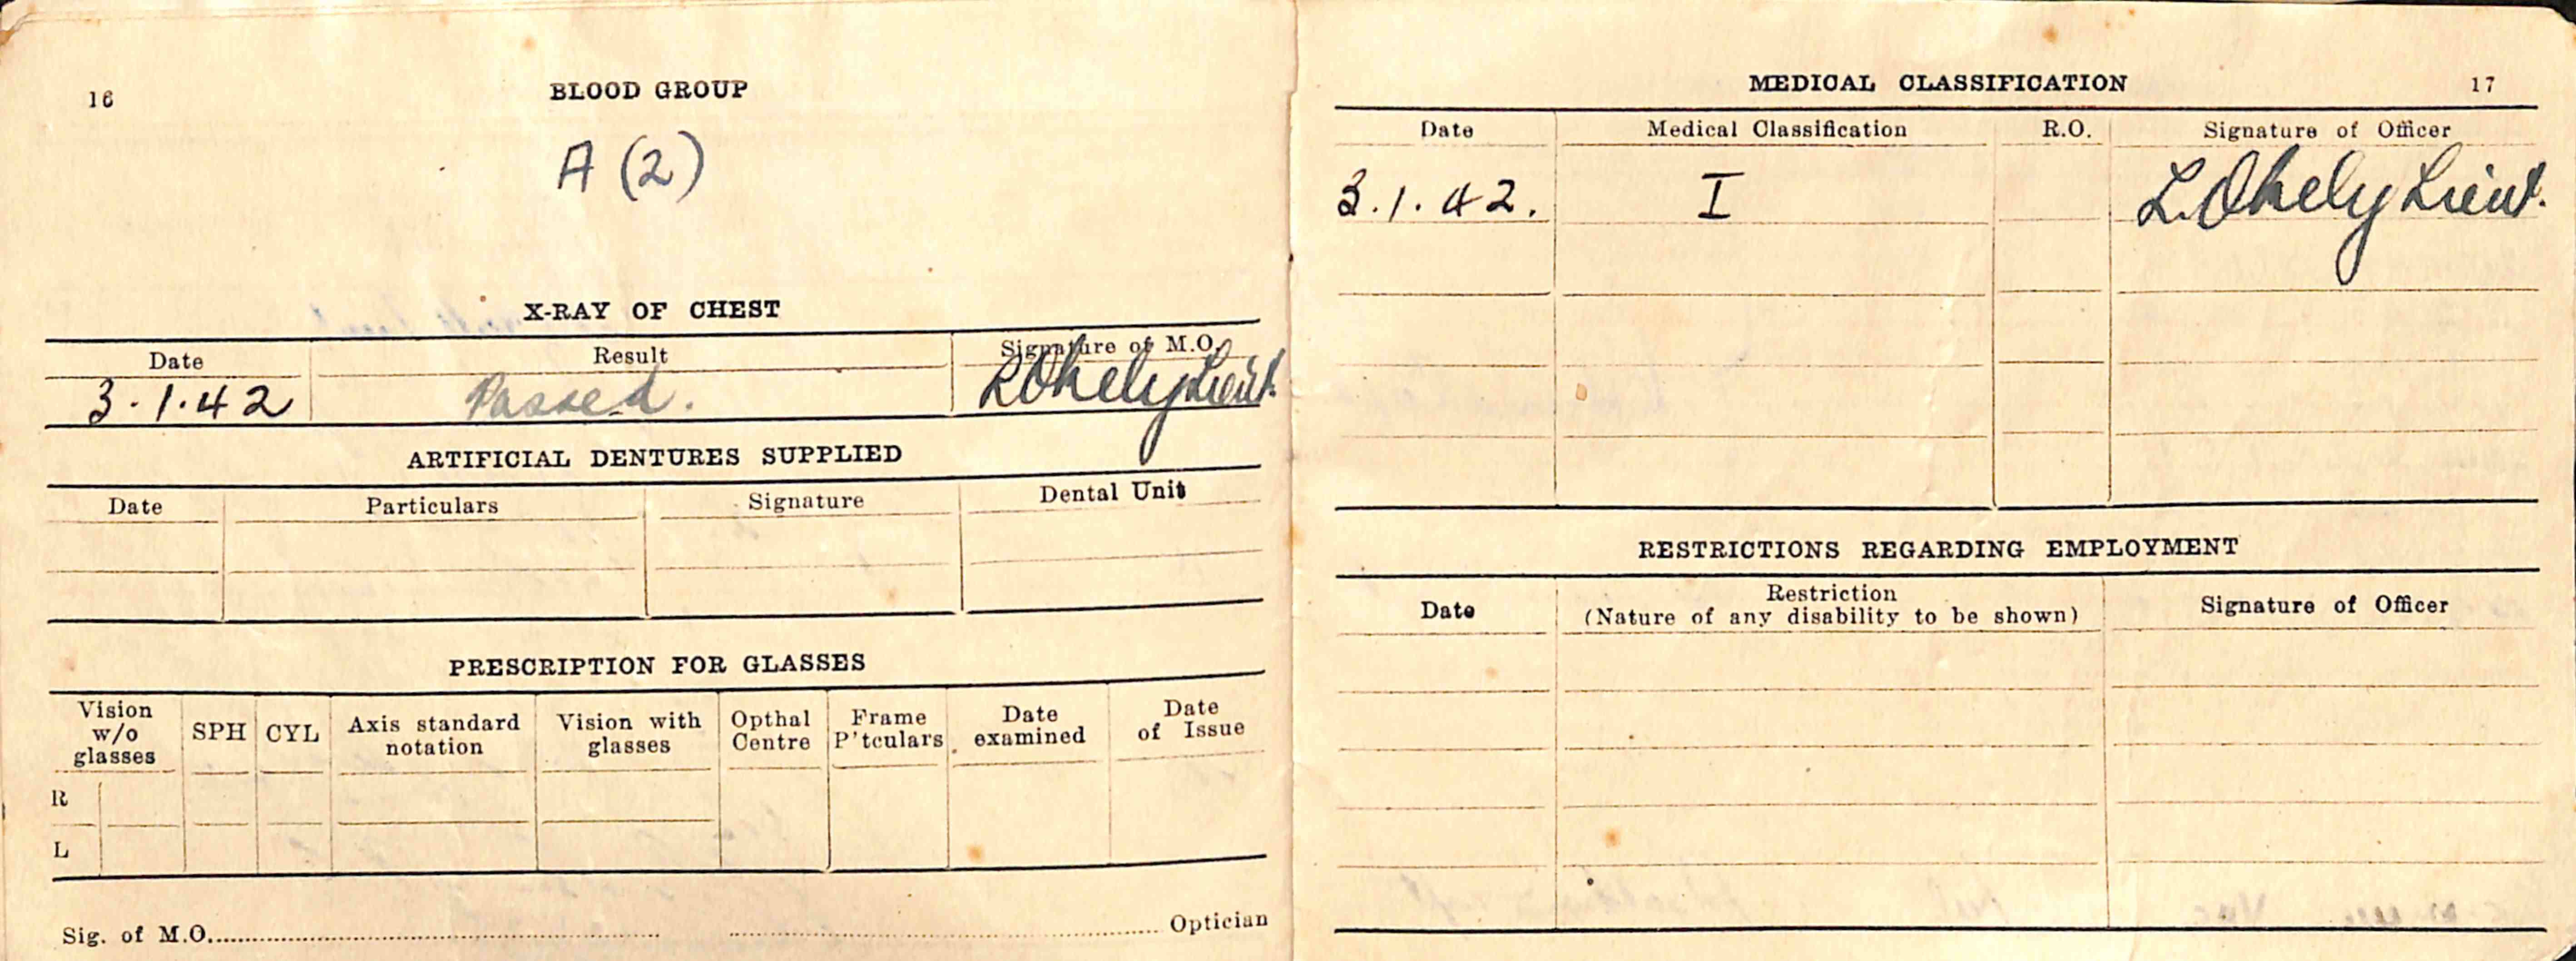 16
BLOOD GROUP
A (2)
X-RAY OF CHEST
Date Result Signature of M.O.
3.1.42 Passed. Lieut.
ARTIFICIAL DENTURES SUPPLIED
Date Particulars Signature Dental Unit
PRESCRIPTION FOR GLASSES
Vision w/o glasses SPH CYL Axis standard notation Vision with glasses Opthal Centre Frame P'tculars Date examined Date of Issue
R
L
Sig. of M.O. Optician
MEDICAL CLASSIFICATION 17
Date Medical Classification R.O. Signature of Officer
3.1.42. I Lieut.
RESTRICTIONS REGARDING EMPLOYMENT
Date Restriction (Nature of any disability to be shown) Signature of Officer